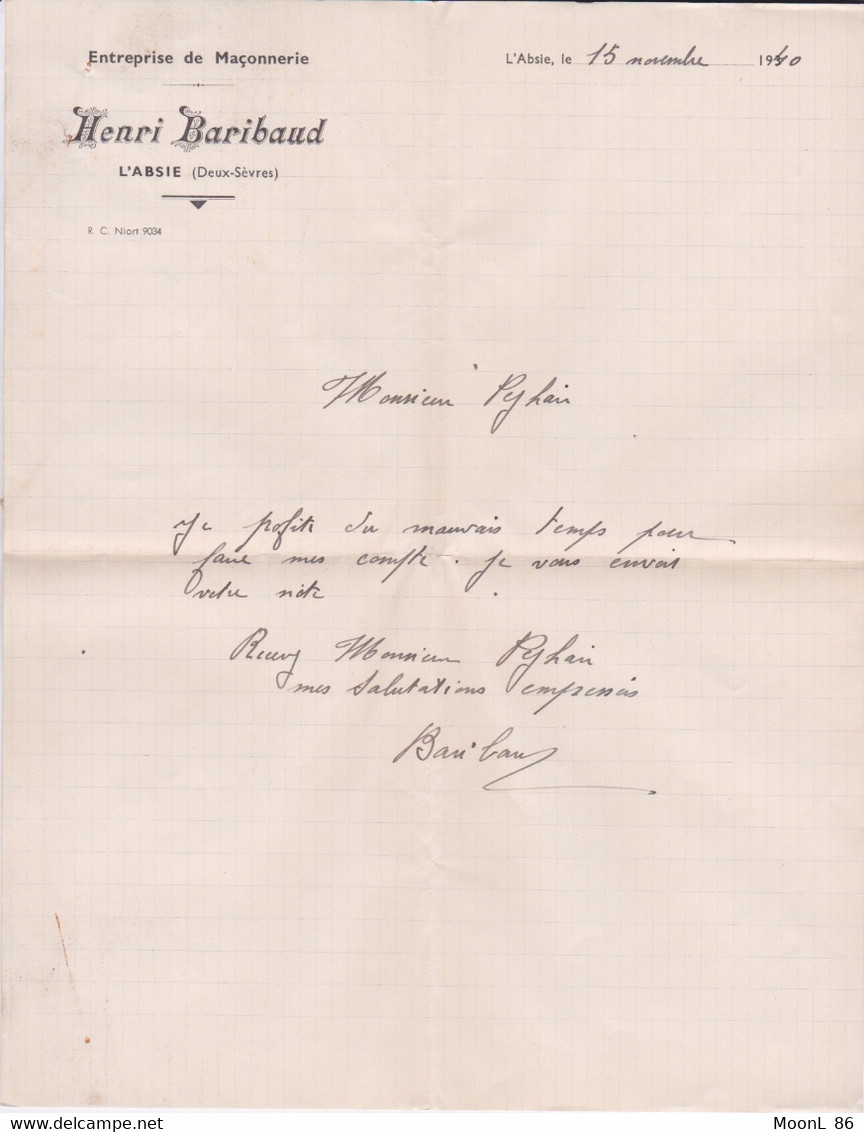 Entreprise de Maçonnerie
L'Absie, le 15 novembre 1940
Henri Baribaud
L'ABSIE (Deux-Sèvres)
R. C. Niort 9034
Monsieur
Je profite du mauvais temps pour
faire mes compte. Je vous envoit
votre note
Recevez Monsieur
mes salutations empressés
Baribaud
MoonL 86